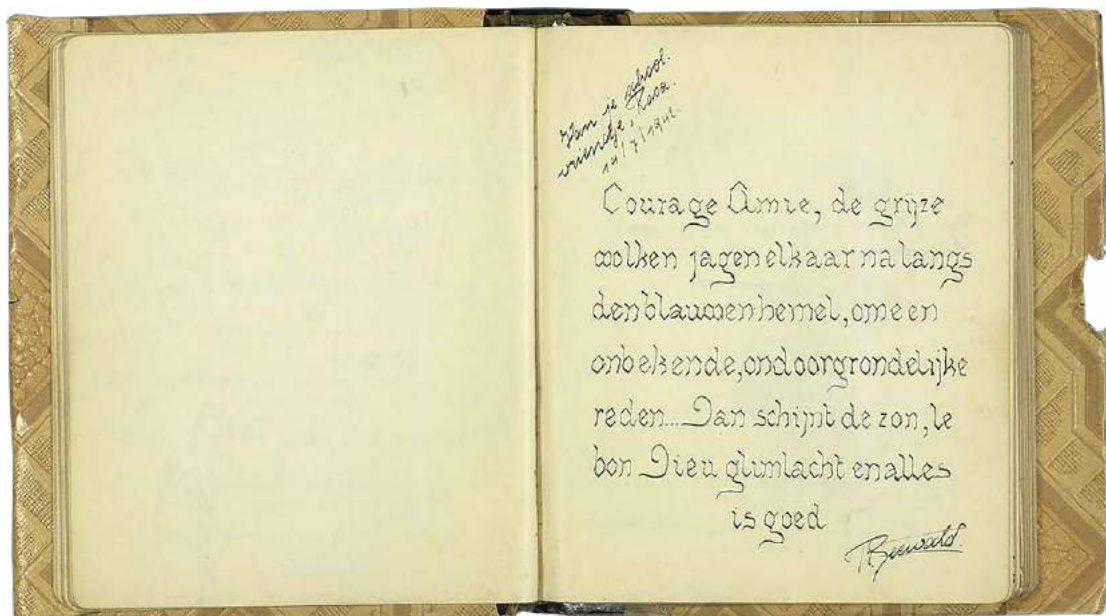 Van je school-
vriendje, Rosa.
14/7/1942.
Courage Amie, de grijze
wolken jagen elkaar na langs
den blauwen hemel, om een
onbekende, ondoorgrondelijke
reden... Dan schijnt de zon, le
bon Dieu glimlacht en alles
is goed